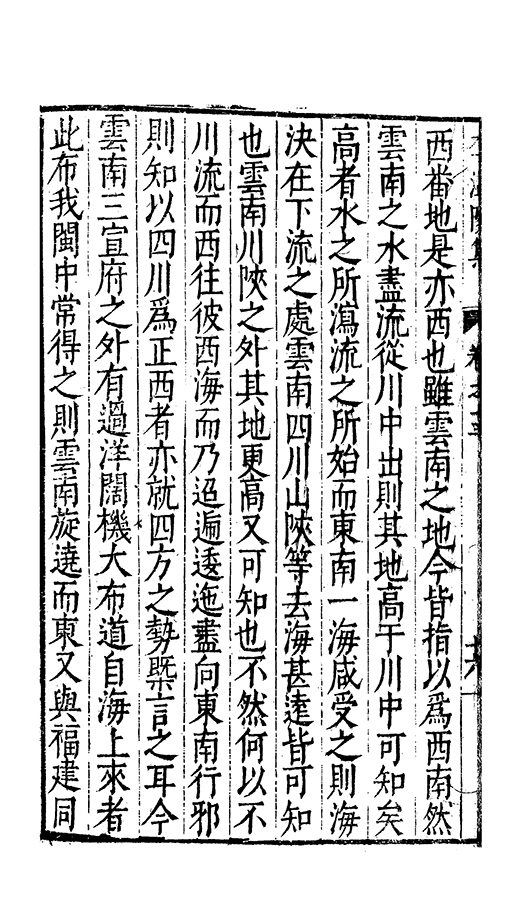 西番地是亦西也雖雲南之地今皆指以爲西南然
雲南之水盡流從川中出則其地高于川中可知矣
高者水之所瀉流之所始而東南一海咸受之則海
決在下流之處雲南四川山陝等去海甚遠皆可知
也雲南川陝之外其地更高又可知也不然何以不
川流而西往彼西海而乃迢遞逶迤盡向東南行邪
則知以四川爲正西者亦就四方之勢槩言之耳今
雲南三宣府之外有過洋闊機大布道自海上來者
此布我閩中常得之則雲南旋遶而東又與福建同